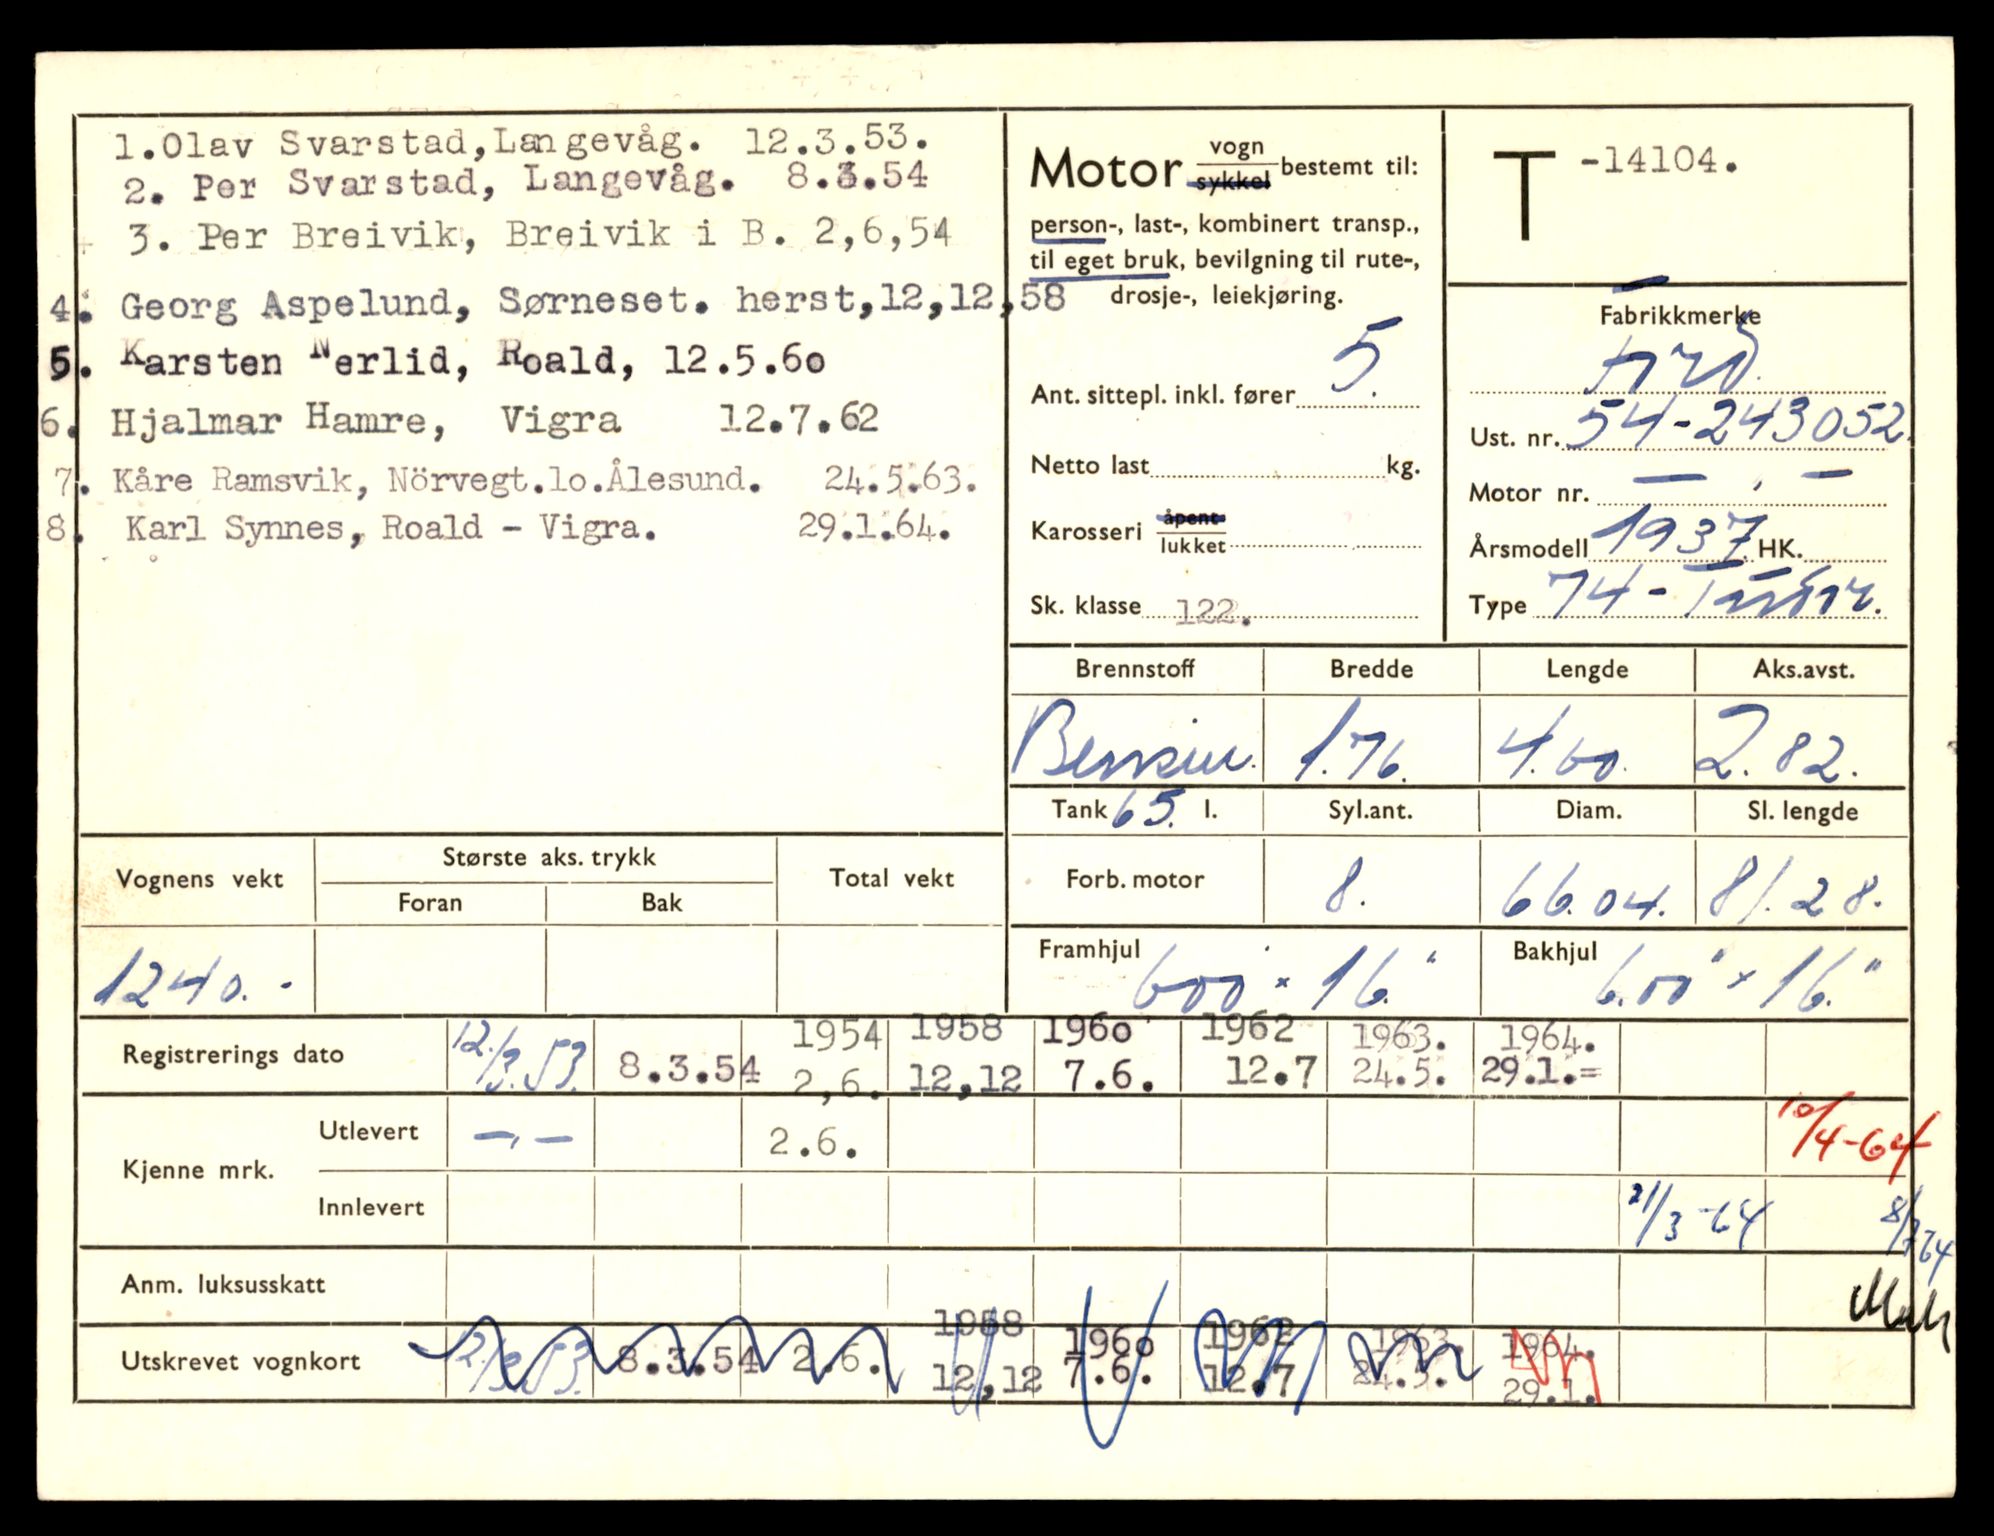 1.Olav Svarstad,Langevåg. 12.3.53.
2. Per Svarstad, Langevåg. 8.3.54
3. Per Breivik, Breivik i B. 2,6,54
4. Georg Aspelund, Sørneset. herst,12,12,58
5. Karsten Nerlid, Roald, 12.5.60
6. Hjalmar Hamre, Vigra 12.7.62
7. Kåre Ramsvik, Nörvegt.lo.Ålesund. 24.5.63.
8. Karl Synnes, Roald - Vigra. 29.1.64.
Motor vogn sykkel bestemt til:
person-, last-, kombinert transp.,
til eget bruk, bevilgning til rute-,
drosje-, leiekjøring.
Ant. sittepl. inkl. fører 5.
Netto last kg.
Karosseri åpent lukket
Sk. klasse 122.
T -14104.
Fabrikkmerke
Ford
Ust. nr. 54-243052.
Motor nr. — , —
Årsmodell 1937. HK.
Type 74-Tudor.
Brennstoff Bredde Lengde Aks.avst.
Bensin. 1.76. 4.60. 2.82.
Tank 65. l. Syl.ant. Diam. Sl. lengde
Forb. motor 8. 66.04. 81.28.
Framhjul 600 × 16." Bakhjul 6.00" × 16."
Vognens vekt Største aks. trykk Total vekt
Foran Bak
1240.-
Registrerings dato 12/3.53. 8.3.54 1954 2,6. 1958 12,12 1960 7.6. 1962 12.7 1963. 24.5. 1964. 29.1.=
Kjenne mrk.
Utlevert —,— 2.6. 10/4-64
Innlevert 21/3-64 8/7 64
Anm. luksusskatt
Utskrevet vognkort 12/3.53. 8.3.54 2.6. 1958 12,12 1960 7.6. 1962 12.7 1963. 24.5. 1964. 29.1.